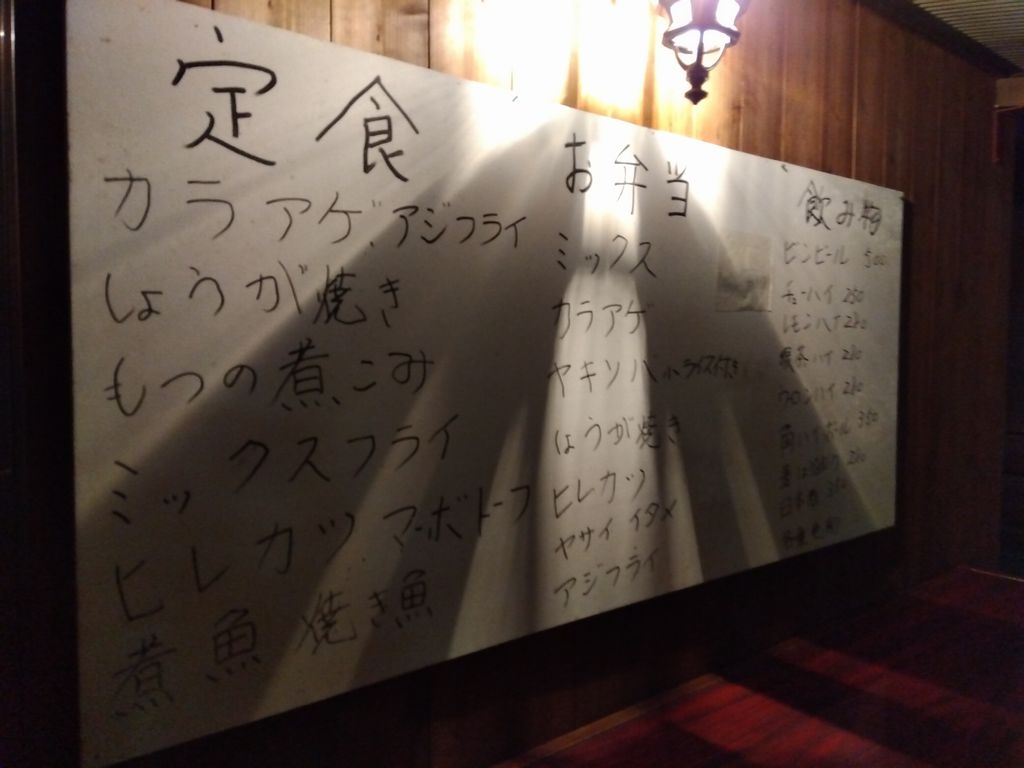 定食
カラアゲ、アジフライ
しょうが焼き
もつの煮こみ
ミックスフライ
ヒレカツ マーボドーフ
煮魚 焼き魚
お弁当
ミックス
カラアゲ
ヤキソバ 小ライス付き
しょうが焼き
ヒレカツ
ヤサイイタメ
アジフライ
飲み物
ビンビール 500
チューハイ 280
レモンハイ 280
ハイ 280
ウロンハイ 280
角ハイボール 350